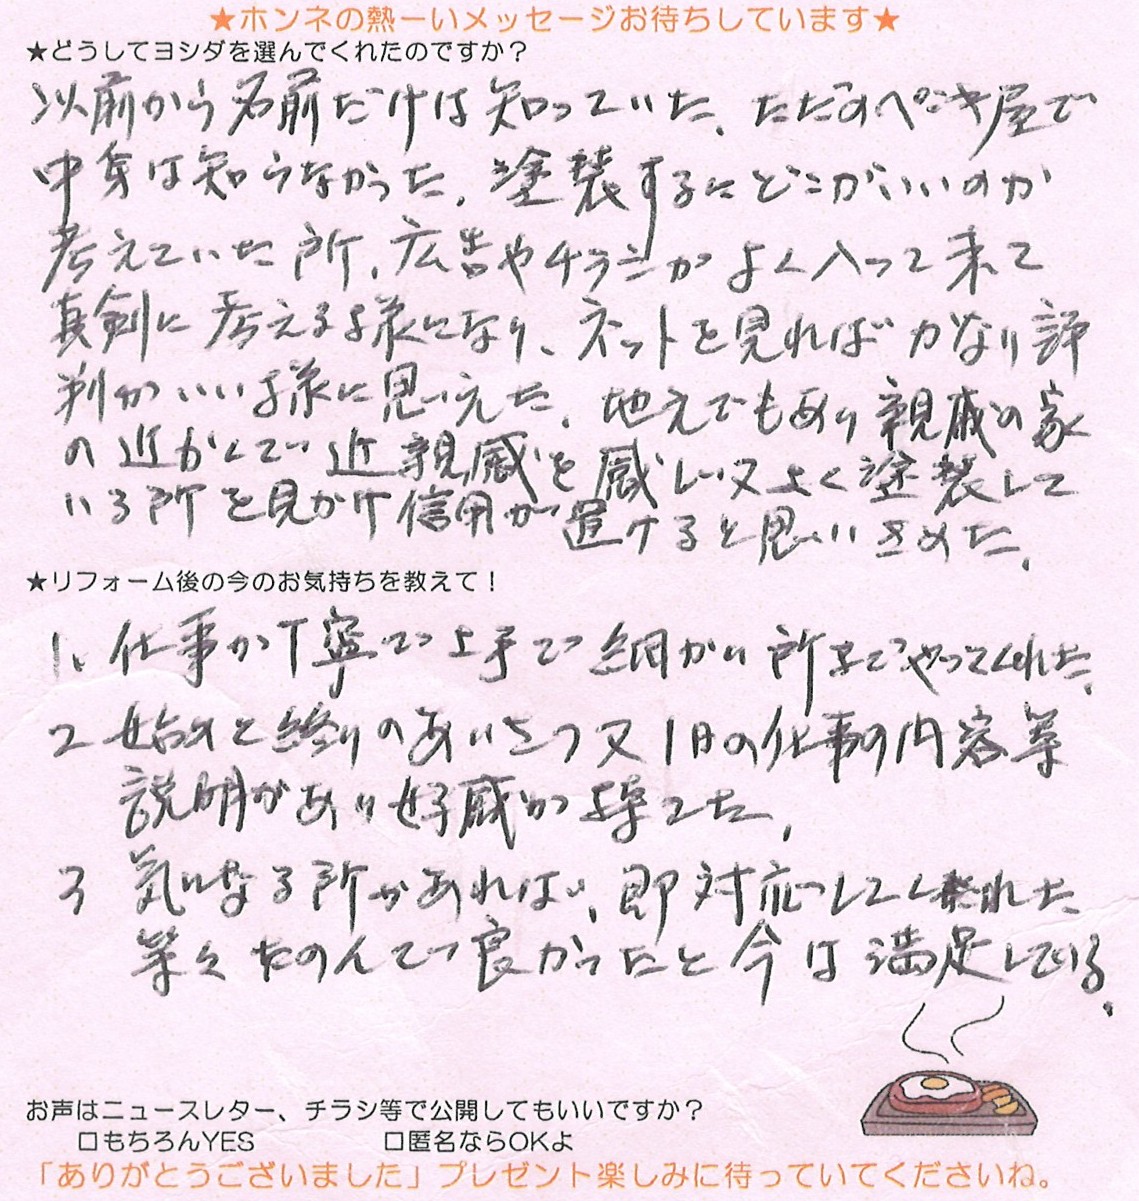 ★ホンネの熱ーいメッセージお待ちしています★
★どうしてヨシダを選んでくれたのですか？
以前から名前だけは知っていた、ただのペンキ屋で
中身は知らなかった。塗装するにどこがいいのか
考えていた所、広告やチラシがよく入って来て
真剣に考える様になり、ネットを見ればかなり評
判がいい様に思えた。地元でもあり親戚の家
の近かくで近親感を感じ又よく塗装して
いる所を見かけ信用が置けると思いきめた。
★リフォーム後の今のお気持ちを教えて！
1、仕事が丁寧で上手で細かい所までやってくれた。
2 始めと終りのあいさつ又1日の仕事の内容等
説明があり好感が持てた。
3 気になる所があれば、即対応してくれた
等々たのんで良かったと今は満足している。
お声はニュースレター、チラシ等で公開してもいいですか？
□もちろんYES □匿名ならOKよ
「ありがとうございました」プレゼント楽しみに待っていてくださいね。